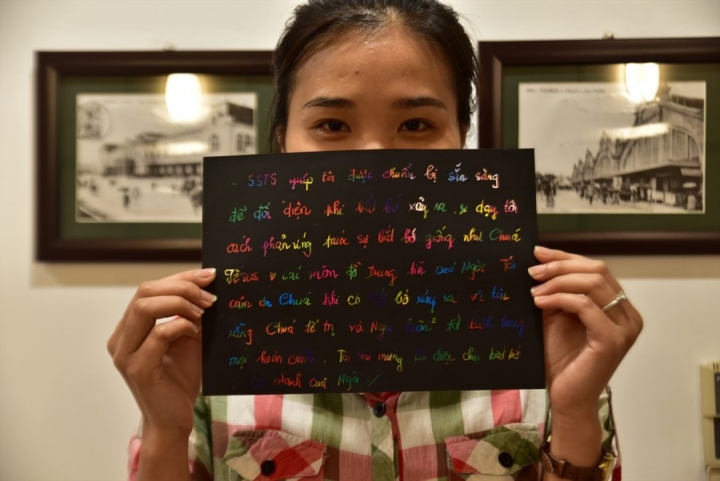 - SSTS giúp tôi được chuẩn bị sẵn sàng
để đối diện khi bắt bớ xảy ra. dạy tôi
cách phản ứng trước sự bắt bớ giống như Chúa
Jêsus và các môn đồ trung tín của Ngài. Tôi
cảm ơn Chúa khi có bắt bớ xảy ra vì tin
rằng Chúa tể trị và Ngài luôn tốt lành trong
mọi hoàn cảnh. Tôi vui mừng được chịu bắt bớ
danh của Ngài